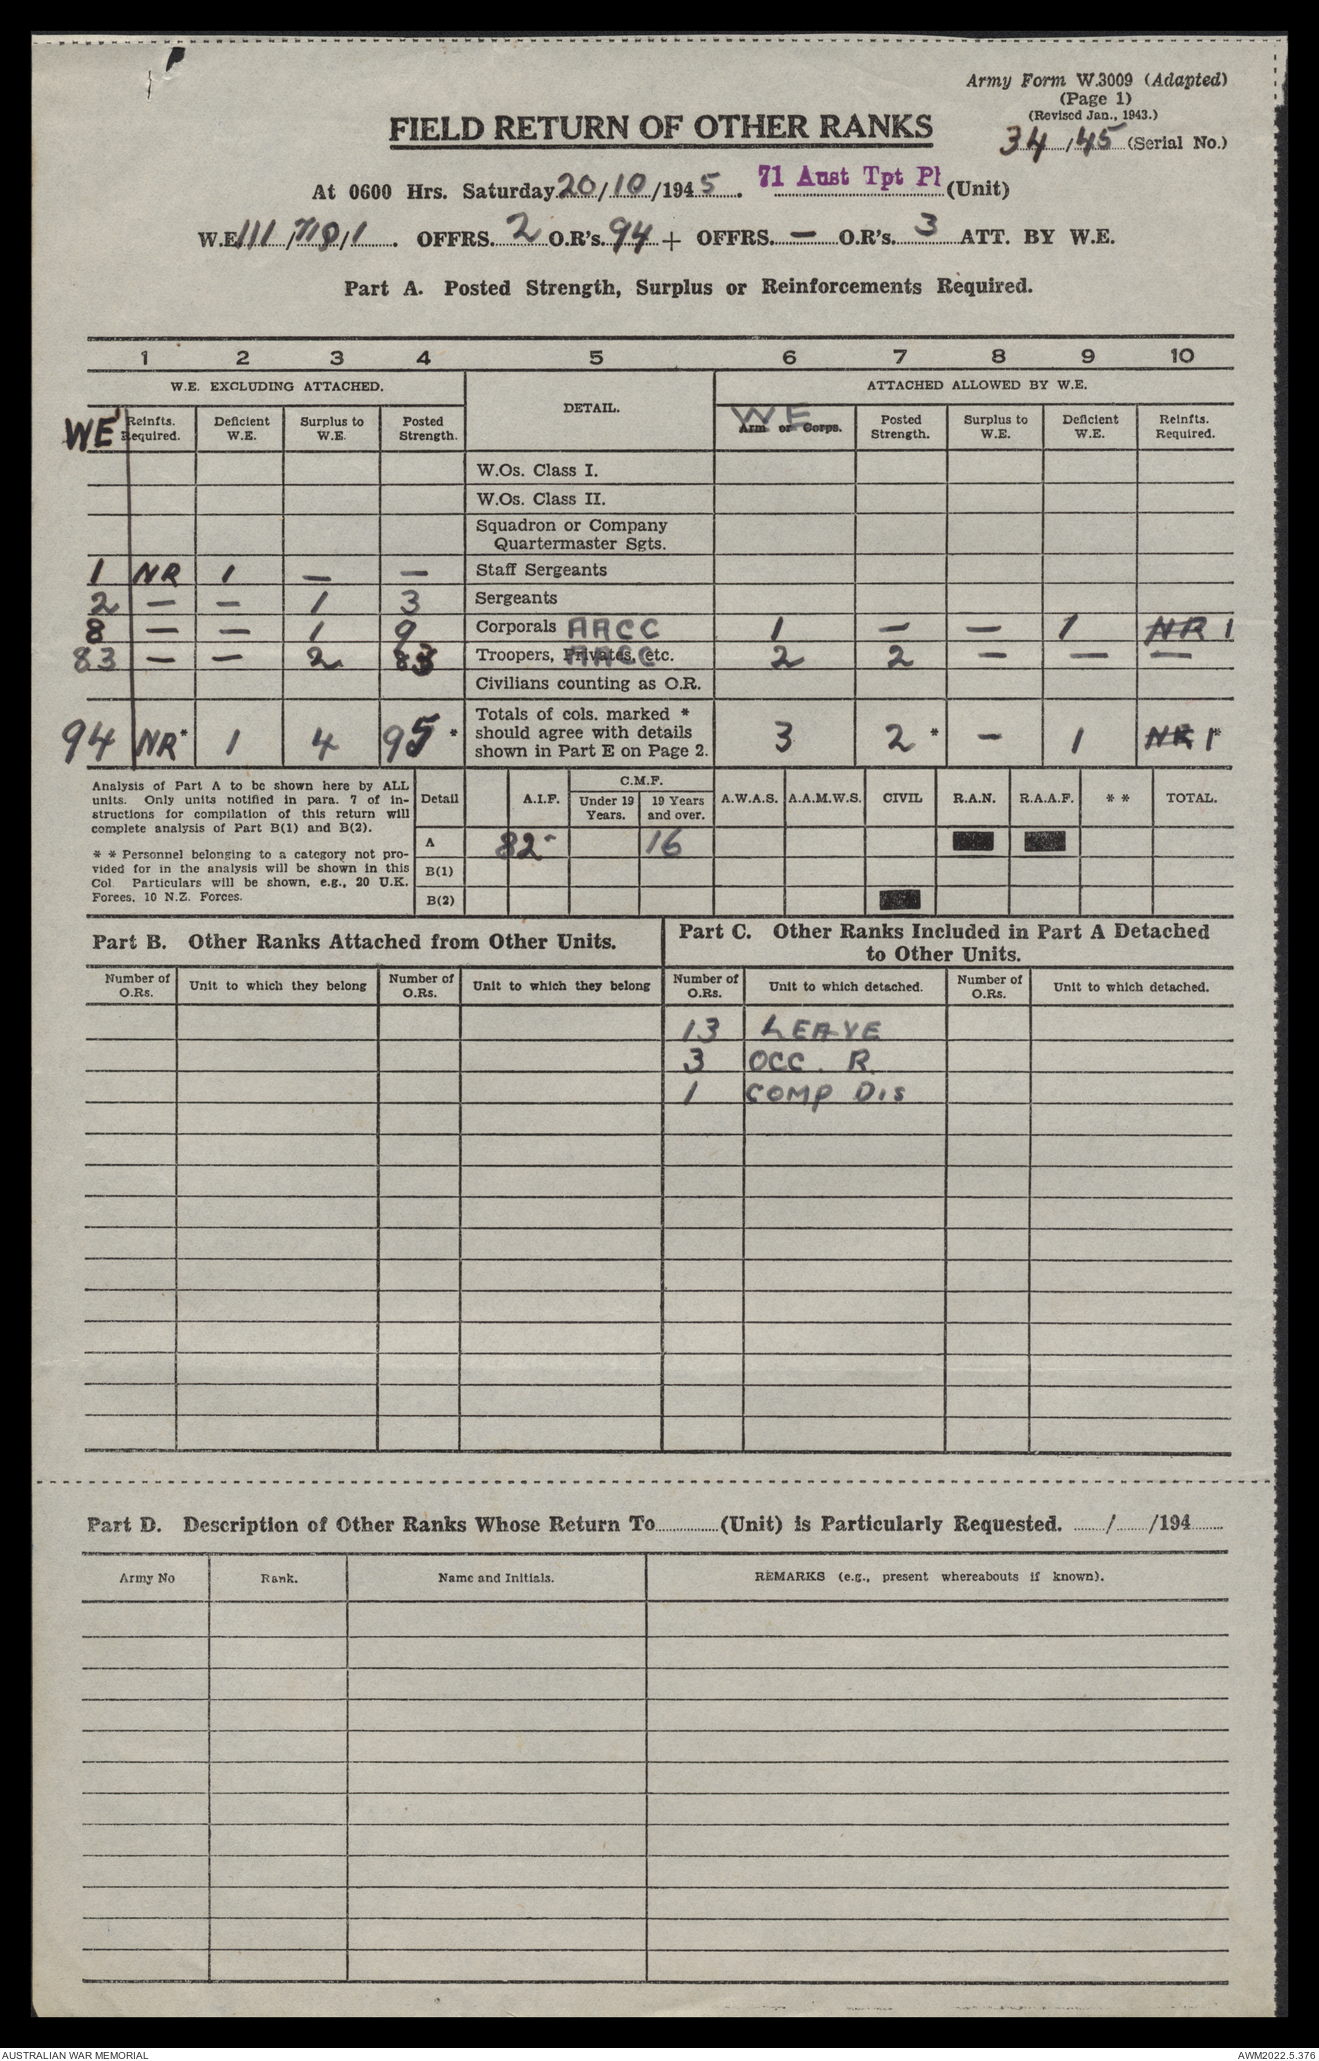 Army Form W.3009 (Adapted)
(Page 1)
(Revised Jan., 1943.)
FIELD RETURN OF OTHER RANKS
34/45 (Serial No.)
At 0600 Hrs. Saturday 20/10/1945. 71 Aust Tpt Pl (Unit)
W.E. 111 / /1. OFFRS. 2 O.R's. 94 + OFFRS. — O.R's. 3 ATT. BY W.E.
Part A. Posted Strength, Surplus or Reinforcements Required.
1 2 3 4 5 6 7 8 9 10
W.E. EXCLUDING ATTACHED. DETAIL. ATTACHED ALLOWED BY W.E.
WE Reinfts. Required. Deficient W.E. Surplus to W.E. Posted Strength. WE Arm or Corps. Posted Strength. Surplus to W.E. Deficient W.E. Reinfts. Required.
W.Os. Class I.
W.Os. Class II.
Squadron or Company
Quartermaster Sgts.
1 NR 1 — — Staff Sergeants
2 — — 1 3 Sergeants
8 — — 1 9 Corporals AACC 1 — — 1 NR 1
83 — — 2 83 Troopers, Privates, etc. AACC 2 2 — — —
Civilians counting as O.R.
Totals of cols. marked *
should agree with details
shown in Part E on Page 2.
94 NR* 1 4 95 * 3 2 * — 1 NR 1*
Analysis of Part A to be shown here by ALL
units. Only units notified in para. 7 of in-
structions for compilation of this return will
complete analysis of Part B(1) and B(2).
* * Personnel belonging to a category not pro-
vided for in the analysis will be shown in this
Col. Particulars will be shown, e.g., 20 U.K.
Forces, 10 N.Z. Forces.
C.M.F.
Detail A.I.F. Under 19 Years. 19 Years and over. A.W.A.S. A.A.M.W.S. CIVIL R.A.N. R.A.A.F. * * TOTAL.
A 82 16
B(1)
B(2)
Part B. Other Ranks Attached from Other Units.
Part C. Other Ranks Included in Part A Detached
to Other Units.
Number of O.Rs. Unit to which they belong Number of O.Rs. Unit to which they belong Number of O.Rs. Unit to which detached. Number of O.Rs. Unit to which detached.
13 LEAVE
3 OCC. R
1 COMP DIS
Part D. Description of Other Ranks Whose Return To............(Unit) is Particularly Requested. ....../....../194......
Army No Rank. Name and Initials. REMARKS (e.g., present whereabouts if known).
AUSTRALIAN WAR MEMORIAL
AWM2022.5.376